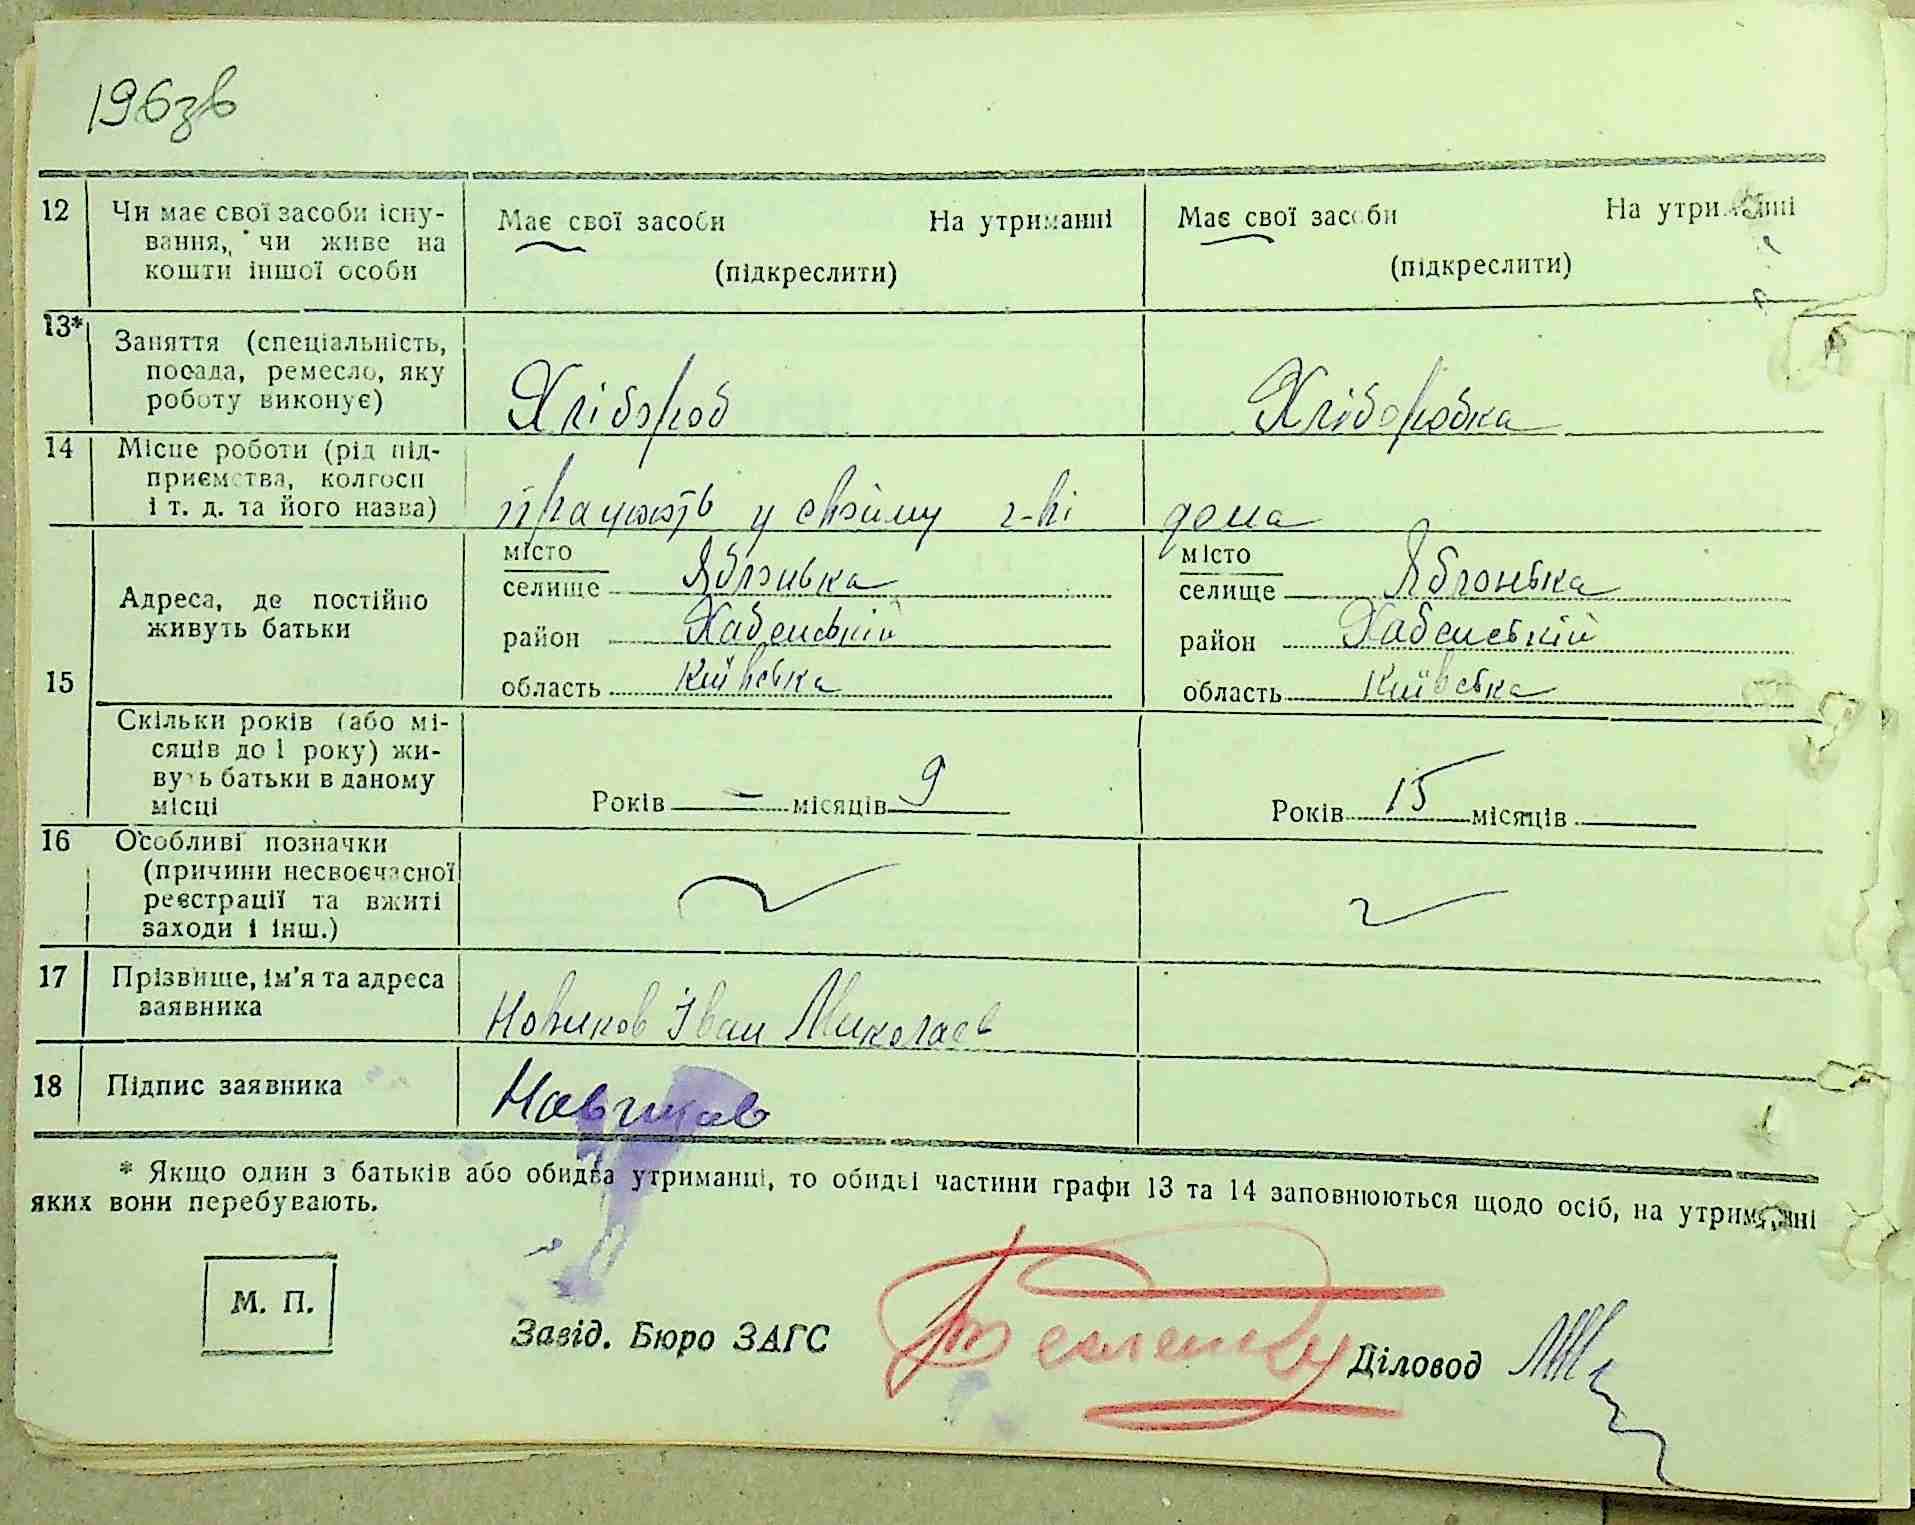 196зв
12 Чи має свої засоби існу- Має свої засоби На утриманні Має свої засоби На утриманні
вання, чи живе на
кошти іншої особи (підкреслити) (підкреслити)
13* Заняття (спеціальність,
посада, ремесло, яку
роботу виконує) Хлібороб Хліборобка
14 Місце роботи (рід під-
приємства, колгосп
і т. д. та його назва) працюють у свойму г-ві дома
місто місто
селище Яблонька селище Яблонька
Адреса, де постійно
живуть батьки район Хабенській район Хабенській
15 область Київська область Київська
Скільки років (або мі-
сяців до 1 року) жи-
вуть батьки в даному
місці Років - місяців 9 Років 15 місяців
16 Особливі позначки
(причини несвоєчасної
реєстрації та вжиті
заходи і інш.)
17 Прізвище, ім'я та адреса
заявника Новиков Іван Миколаєв
18 Підпис заявника
* Якщо один з батьків або обидва утриманні, то обидві частини графи 13 та 14 заповнюються щодо осіб, на утриманні
яких вони перебувають.
М. П.
Завід. Бюро ЗАГС Діловод